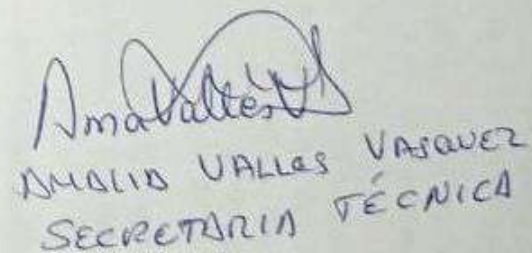 AmaVallesV
AMALIA VALLES VASQUEZ
SECRETARIA TÉCNICA